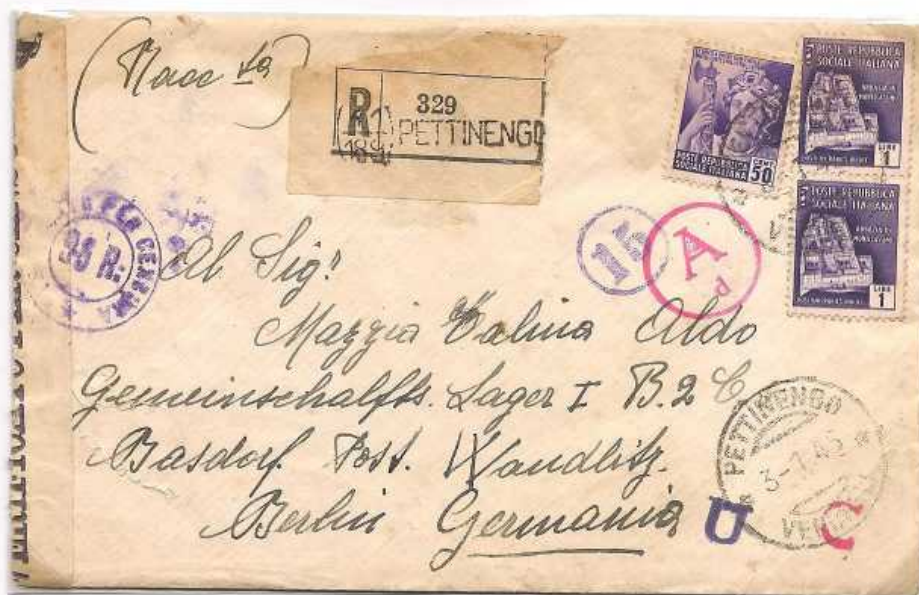 (Racc ta)
R 329
PETTINENGO
POSTE REPUBBLICA
SOCIALE ITALIANA
CENT 50
POSTE REPUBBLICA
SOCIALE ITALIANA
LIRE
1
POSTE REPUBBLICA
SOCIALE ITALIANA
LIRE
1
PER CENSURA
36 R.
15
A
d
Al Sig.
Mazzia Aldo
Gemeinschalfts. Lager I B. 2 C
Basdorf. Post. Wandlitz.
Berlin Germania
PETTINENGO
3-1.45
U
C